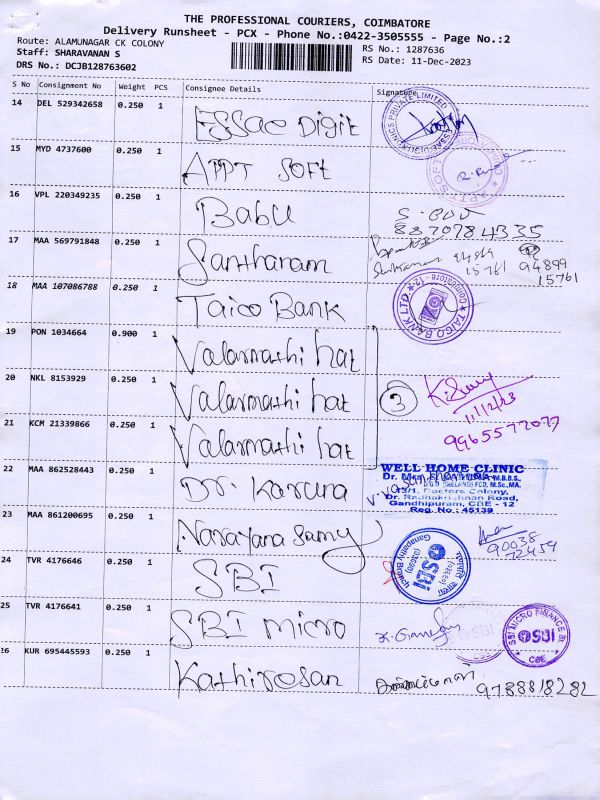 THE PROFESSIONAL COURIERS, COIMBATORE
Delivery Runsheet - PCX - Phone No.:0422-3505555 - Page No.:2
Route: ALAMUNAGAR CK COLONY
RS No.: 1287636
Staff: SHARAVANAN S
RS Date: 11-Dec-2023
DRS No.: DCJB128763602
S No Consignment No Weight PCS Consignee Details Signature
14 DEL 529342658 0.250 1 ESSAE Digit
15 MYD 4737600 0.250 1 APPT SOFT
16 VPL 220349235 0.250 1 Babu
8870784335
17 MAA 569791848 0.250 1 Santharam
15761 94899
15761
18 MAA 107086788 0.250 1 Taico Bank
TAICO BANK LTD Coimbatore - 12
19 PON 1034664 0.900 1 Valarmathi hat
20 NKL 8153929 0.250 1 Valarmathi hat 3
11/12/23
21 KCM 21339866 0.250 1 Valarmathi hat 9965577077
22 MAA 862528443 0.250 1 Dr. Karuna
WELL HOME CLINIC
Dr. Mrs. M.B.B.S.,
Doctors Colony,
Dr. Radhakrishnan Road,
Gandhipuram, CBE - 12
Reg. No.: 45139
23 MAA 861200695 0.250 1 Narayana Samy 90038
72459
24 TVR 4176646 0.250 1 SBI
SBI Ganapathy
25 TVR 4176641 0.250 1 SBI micro K. Ganesan
SBI MICRO FINANCE Br SBI CBE
26 KUR 695445593 0.250 1 Kathirosan 9788818282